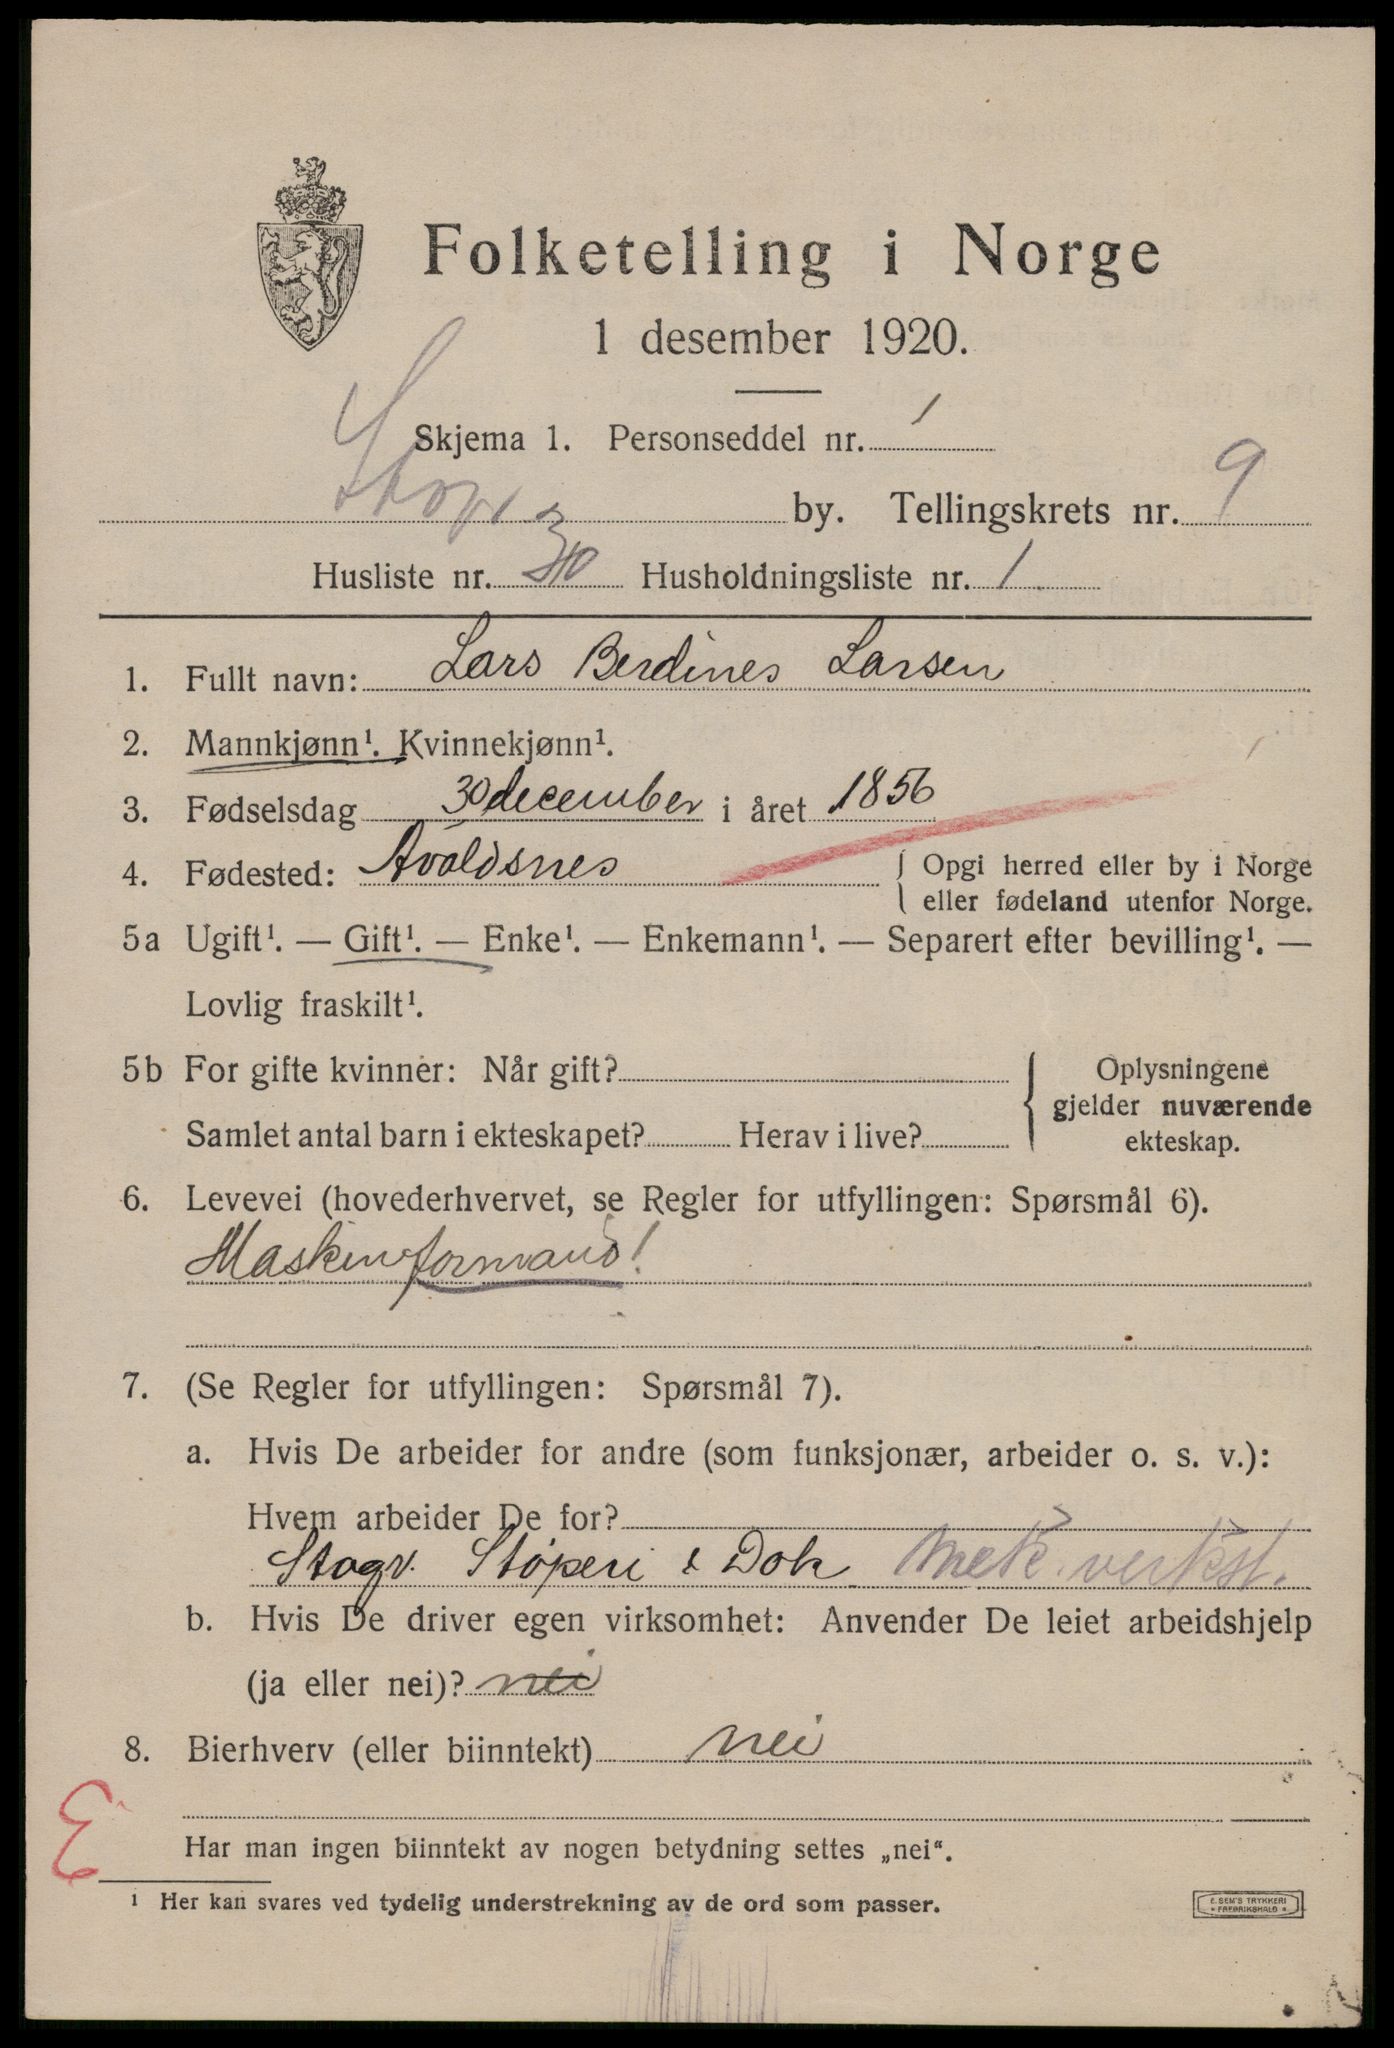 Folketelling i Norge
1 desember 1920.
Skjema 1. Personseddel nr. 1
by. Tellingskrets nr. 9
Husliste nr. 30 Husholdningsliste nr. 1
1. Fullt navn: Lars Berdines Larsen
2. Mannkjønn¹. Kvinnekjønn¹.
3. Fødselsdag 30 december i året 1856
4. Fødested: Avaldsnes { Opgi herred eller by i Norge
eller fødeland utenfor Norge.
5a Ugift¹. — Gift¹. — Enke¹. — Enkemann¹. — Separert efter bevilling¹. —
Lovlig fraskilt¹.
5b For gifte kvinner: Når gift? { Oplysningene
gjelder nuværende
Samlet antal barn i ekteskapet? Herav i live? ekteskap.
6. Levevei (hovederhvervet, se Regler for utfyllingen: Spørsmål 6).
Maskinformand!
7. (Se Regler for utfyllingen: Spørsmål 7).
a. Hvis De arbeider for andre (som funksjonær, arbeider o. s. v.):
Hvem arbeider De for?
Støperi & Dok Mek. verkst.
b. Hvis De driver egen virksomhet: Anvender De leiet arbeidshjelp
(ja eller nei)? nei
8. Bierhverv (eller biinntekt) nei
Har man ingen biinntekt av nogen betydning settes „nei“.
¹ Her kan svares ved tydelig understrekning av de ord som passer.
E. SEM'S TRYKKERI
FREDRIKSHALD